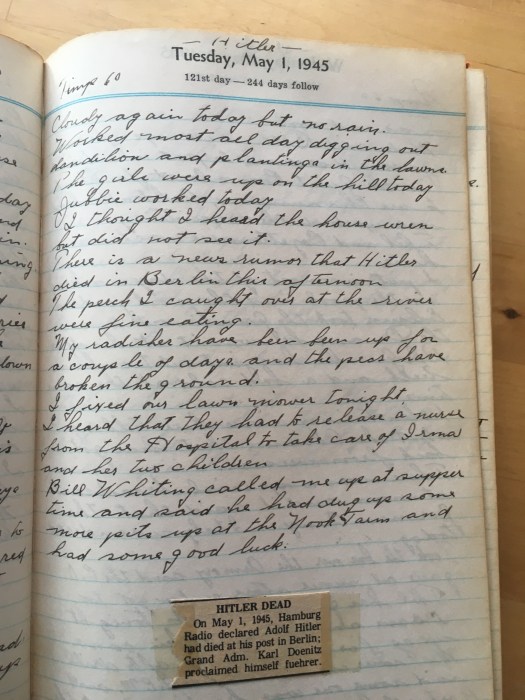 — Hitler —
Tuesday, May 1, 1945
121st day—244 days follow
Temp 60
Cloudy again today but no rain.
Worked most all day digging out
dandilion and plantings in the lawn.
The girls were up on the hill today
Jubbie worked today
I thought I heard the house wren
but did not see it.
There is a news rumor that Hitler
died in Berlin this afternoon
The perch I caught over at the river
were fine eating.
My radishes have been been up for
a couple of days and the peas have
broken the ground.
I fixed our lawn mower tonight.
I heard that they had to release a nurse
from the Hospital to take care of Irma
and her two children
Bill Whiting called me up at supper
time and said he had dug up some
more pits up at the Nook Farm and
had some good luck.
HITLER DEAD
On May 1, 1945, Hamburg
Radio declared Adolf Hitler
had died at his post in Berlin;
Grand Adm. Karl Doenitz
proclaimed himself fuehrer.